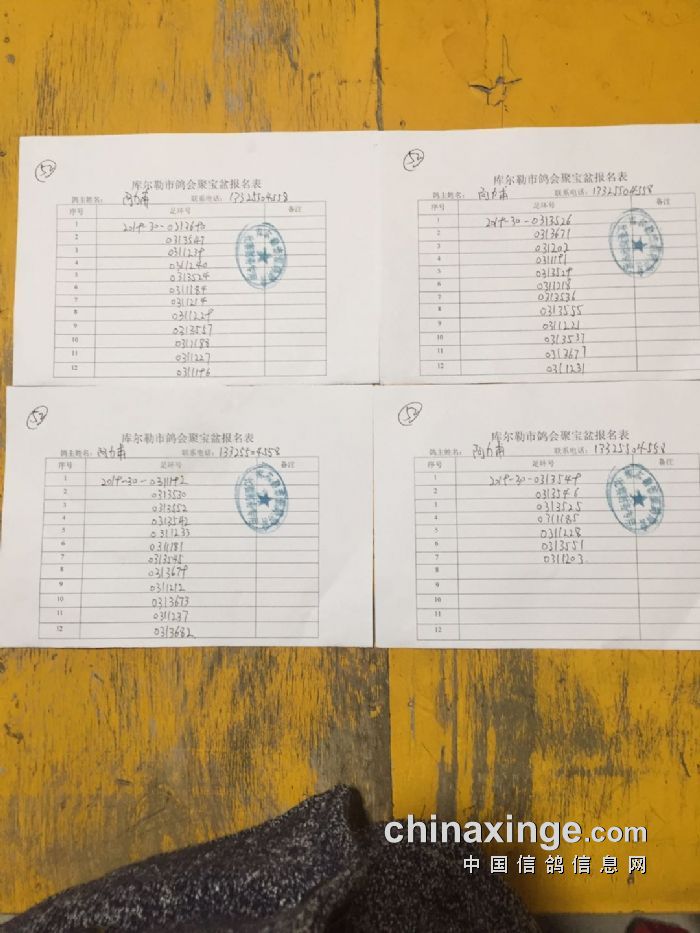 52
库尔勒市鸽会聚宝盆报名表
鸽主姓名： 阿力甫 联系电话：13325504558
序号 足环号 备注
1 2019-30-0313690
2 0313547
3 0311239
4 0311240
5 0313524
6 0311184
7 0311214
8 0311229
9 0313557
10 0311188
11 0311227
12 0311196
52
库尔勒市鸽会聚宝盆报名表
鸽主姓名： 阿力甫 联系电话：13325504558
序号 足环号 备注
1 2019-30-0313526
2 0313671
3 031202
4 0311191
5 0313529
6 0311218
7 0313536
8 0313555
9 0311221
10 0313537
11 0313677
12 0311231
52
库尔勒市鸽会聚宝盆报名表
鸽主姓名： 阿力甫 联系电话：13325504558
序号 足环号 备注
1 2019-30-0311192
2 0313530
3 0313552
4 0313542
5 0311233
6 0311181
7 0313545
8 0313679
9 0311212
10 0313673
11 0311237
12 0313682
52
库尔勒市鸽会聚宝盆报名表
鸽主姓名： 阿力甫 联系电话：13325504558
序号 足环号 备注
1 2019-30-0313549
2 0313546
3 0313525
4 0311185
5 0311228
6 0313551
7 0311203
8
9
10
11
12
chinaxinge.com
中国信鸽信息网